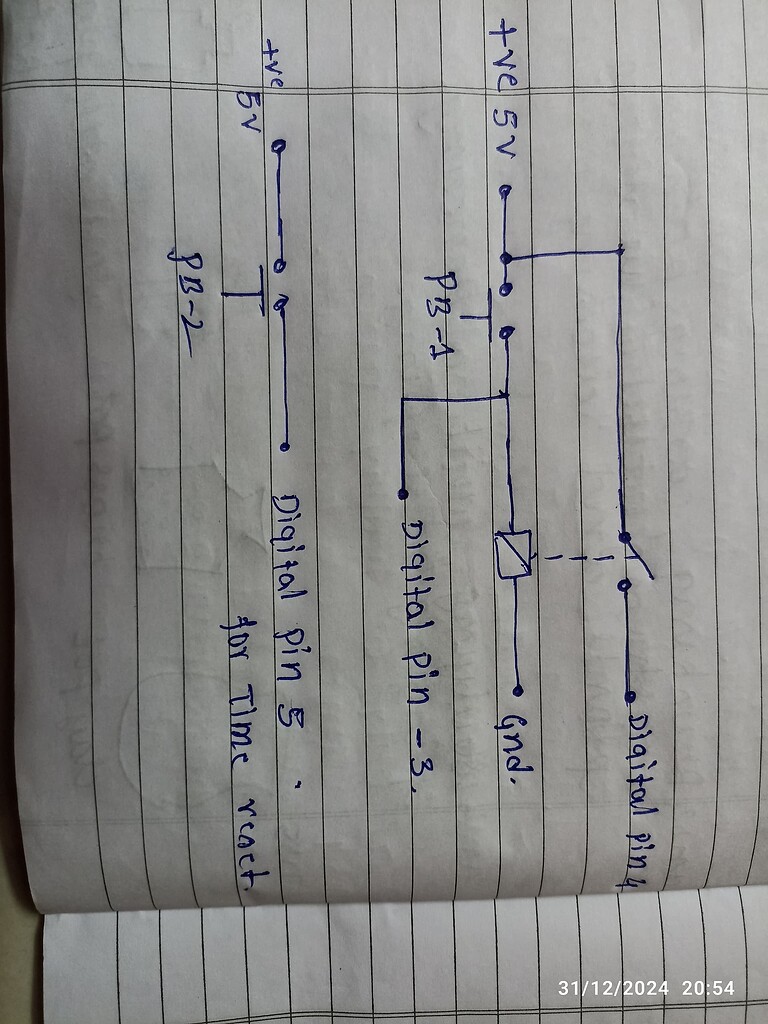 +ve 5v
Digital pin 4
PB-1
Gnd.
Digital pin - 3.
+ve
5v
PB-2
Digital pin 5
for Time react.
31/12/2024 20:54